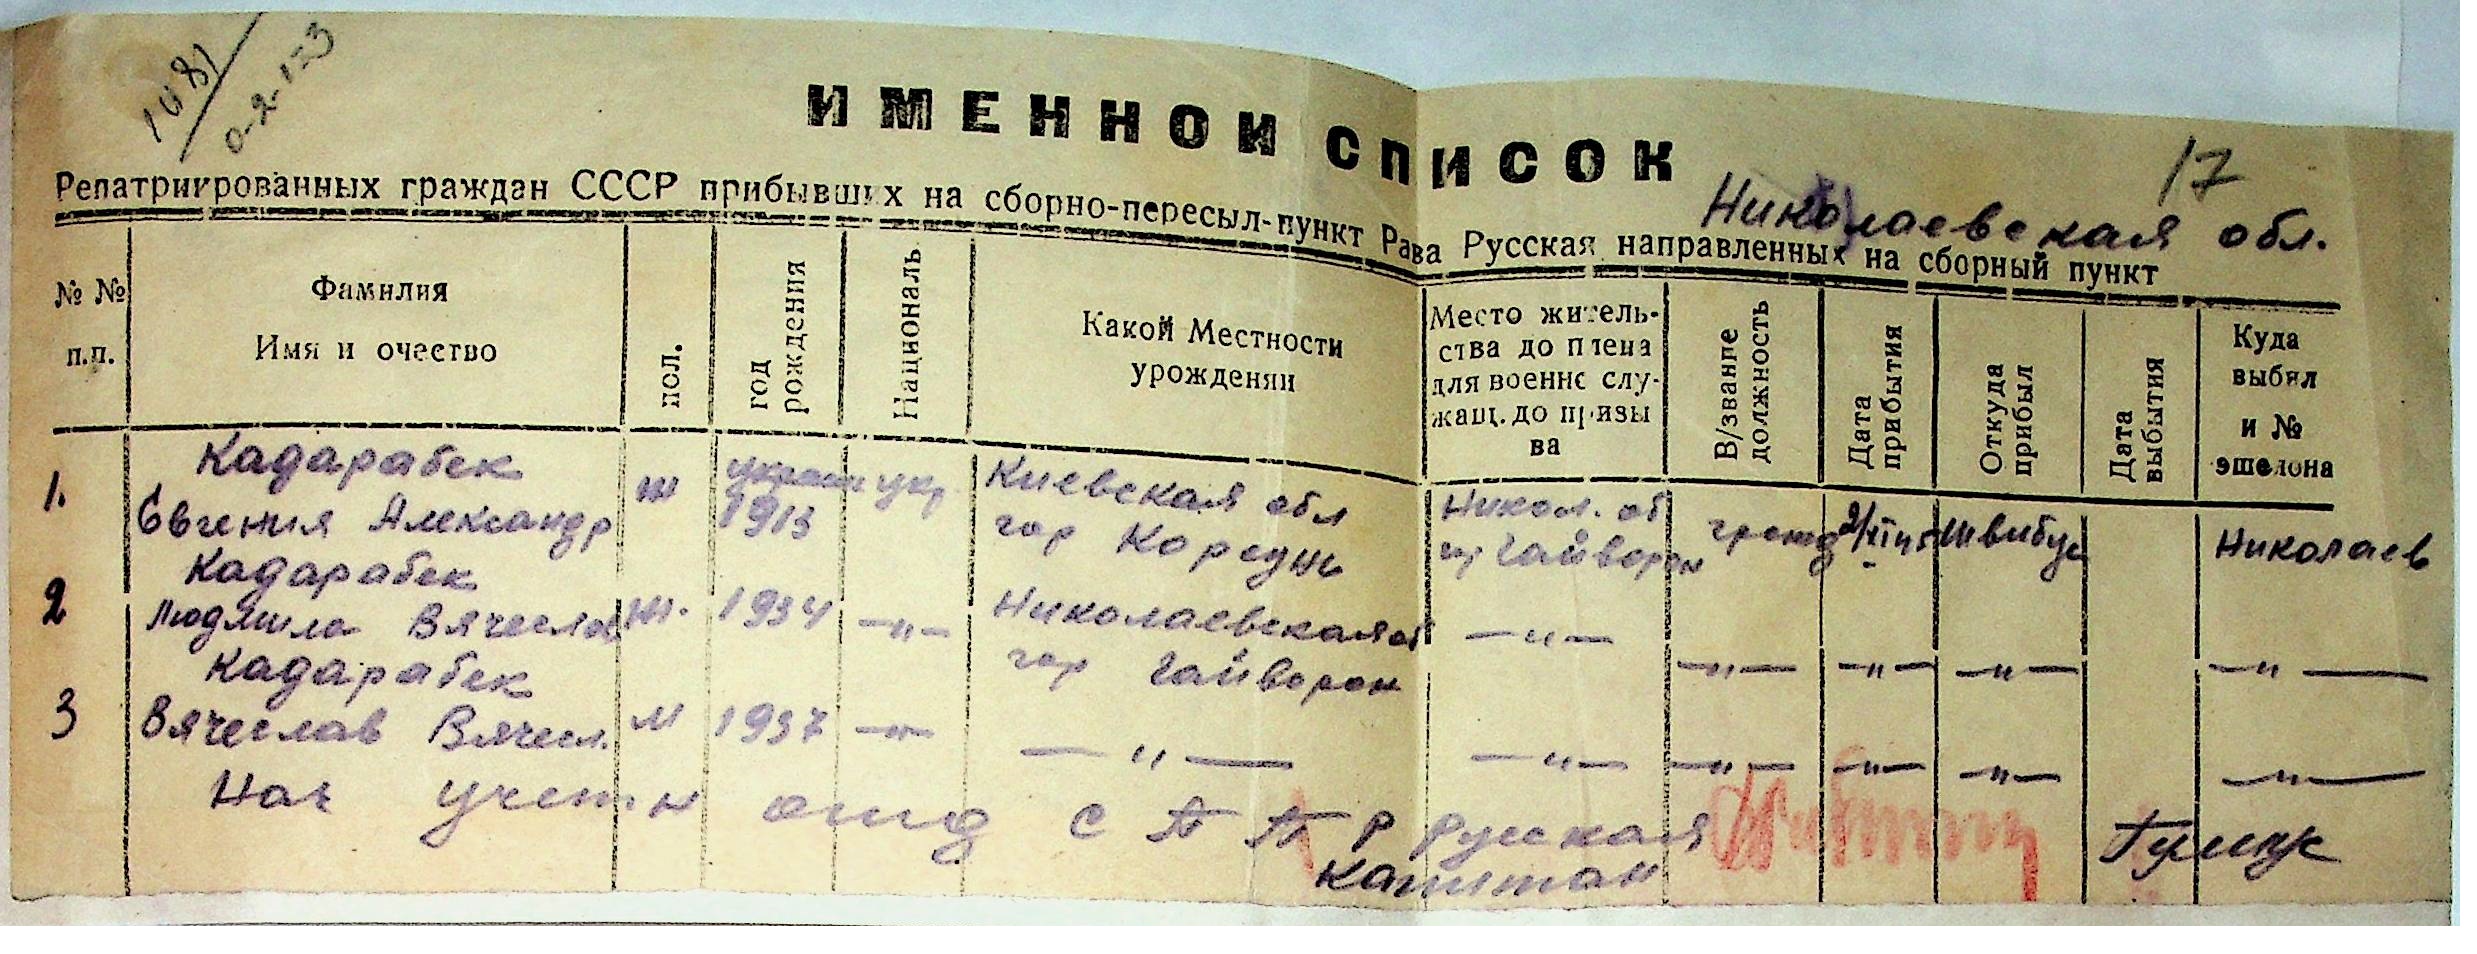 1081
0-2-133
17
ИМЕННОЙ СПИСОК
Николаевская обл.
Репатриированных граждан СССР прибывших на сборно-пересыл-пункт Рава Русская направленных на сборный пункт
№ № п.п.
Фамилия
Имя и очество
пол.
год рождения
Националь
Какой Местности
урожденян
Место житель-
ства до плена
для военно слу-
жащ. до призы
ва
В/звание
должность
Дата
прибытия
Откуда
прибыл
Дата
выбытия
Куда
выбыл
и №
эшелона
1. Кадарабек
Евгения Александр ж украин 1913 укр. Киевская обл гор Корсунь Никол. об Гайворон гражд 2/XI 45 Швибус Николаев
2 Кадарабек
Людмила Вячеслав ж. 1934 —"— Николаевская об гор Гайворон —"— —"— —"— —"— —"—
3 Кадарабек
Вячеслав Вячесл. м 1937 —"— —"— —"— —"— —"— —"— —"—
Нач учетн отд С П П Р Русская
капитан